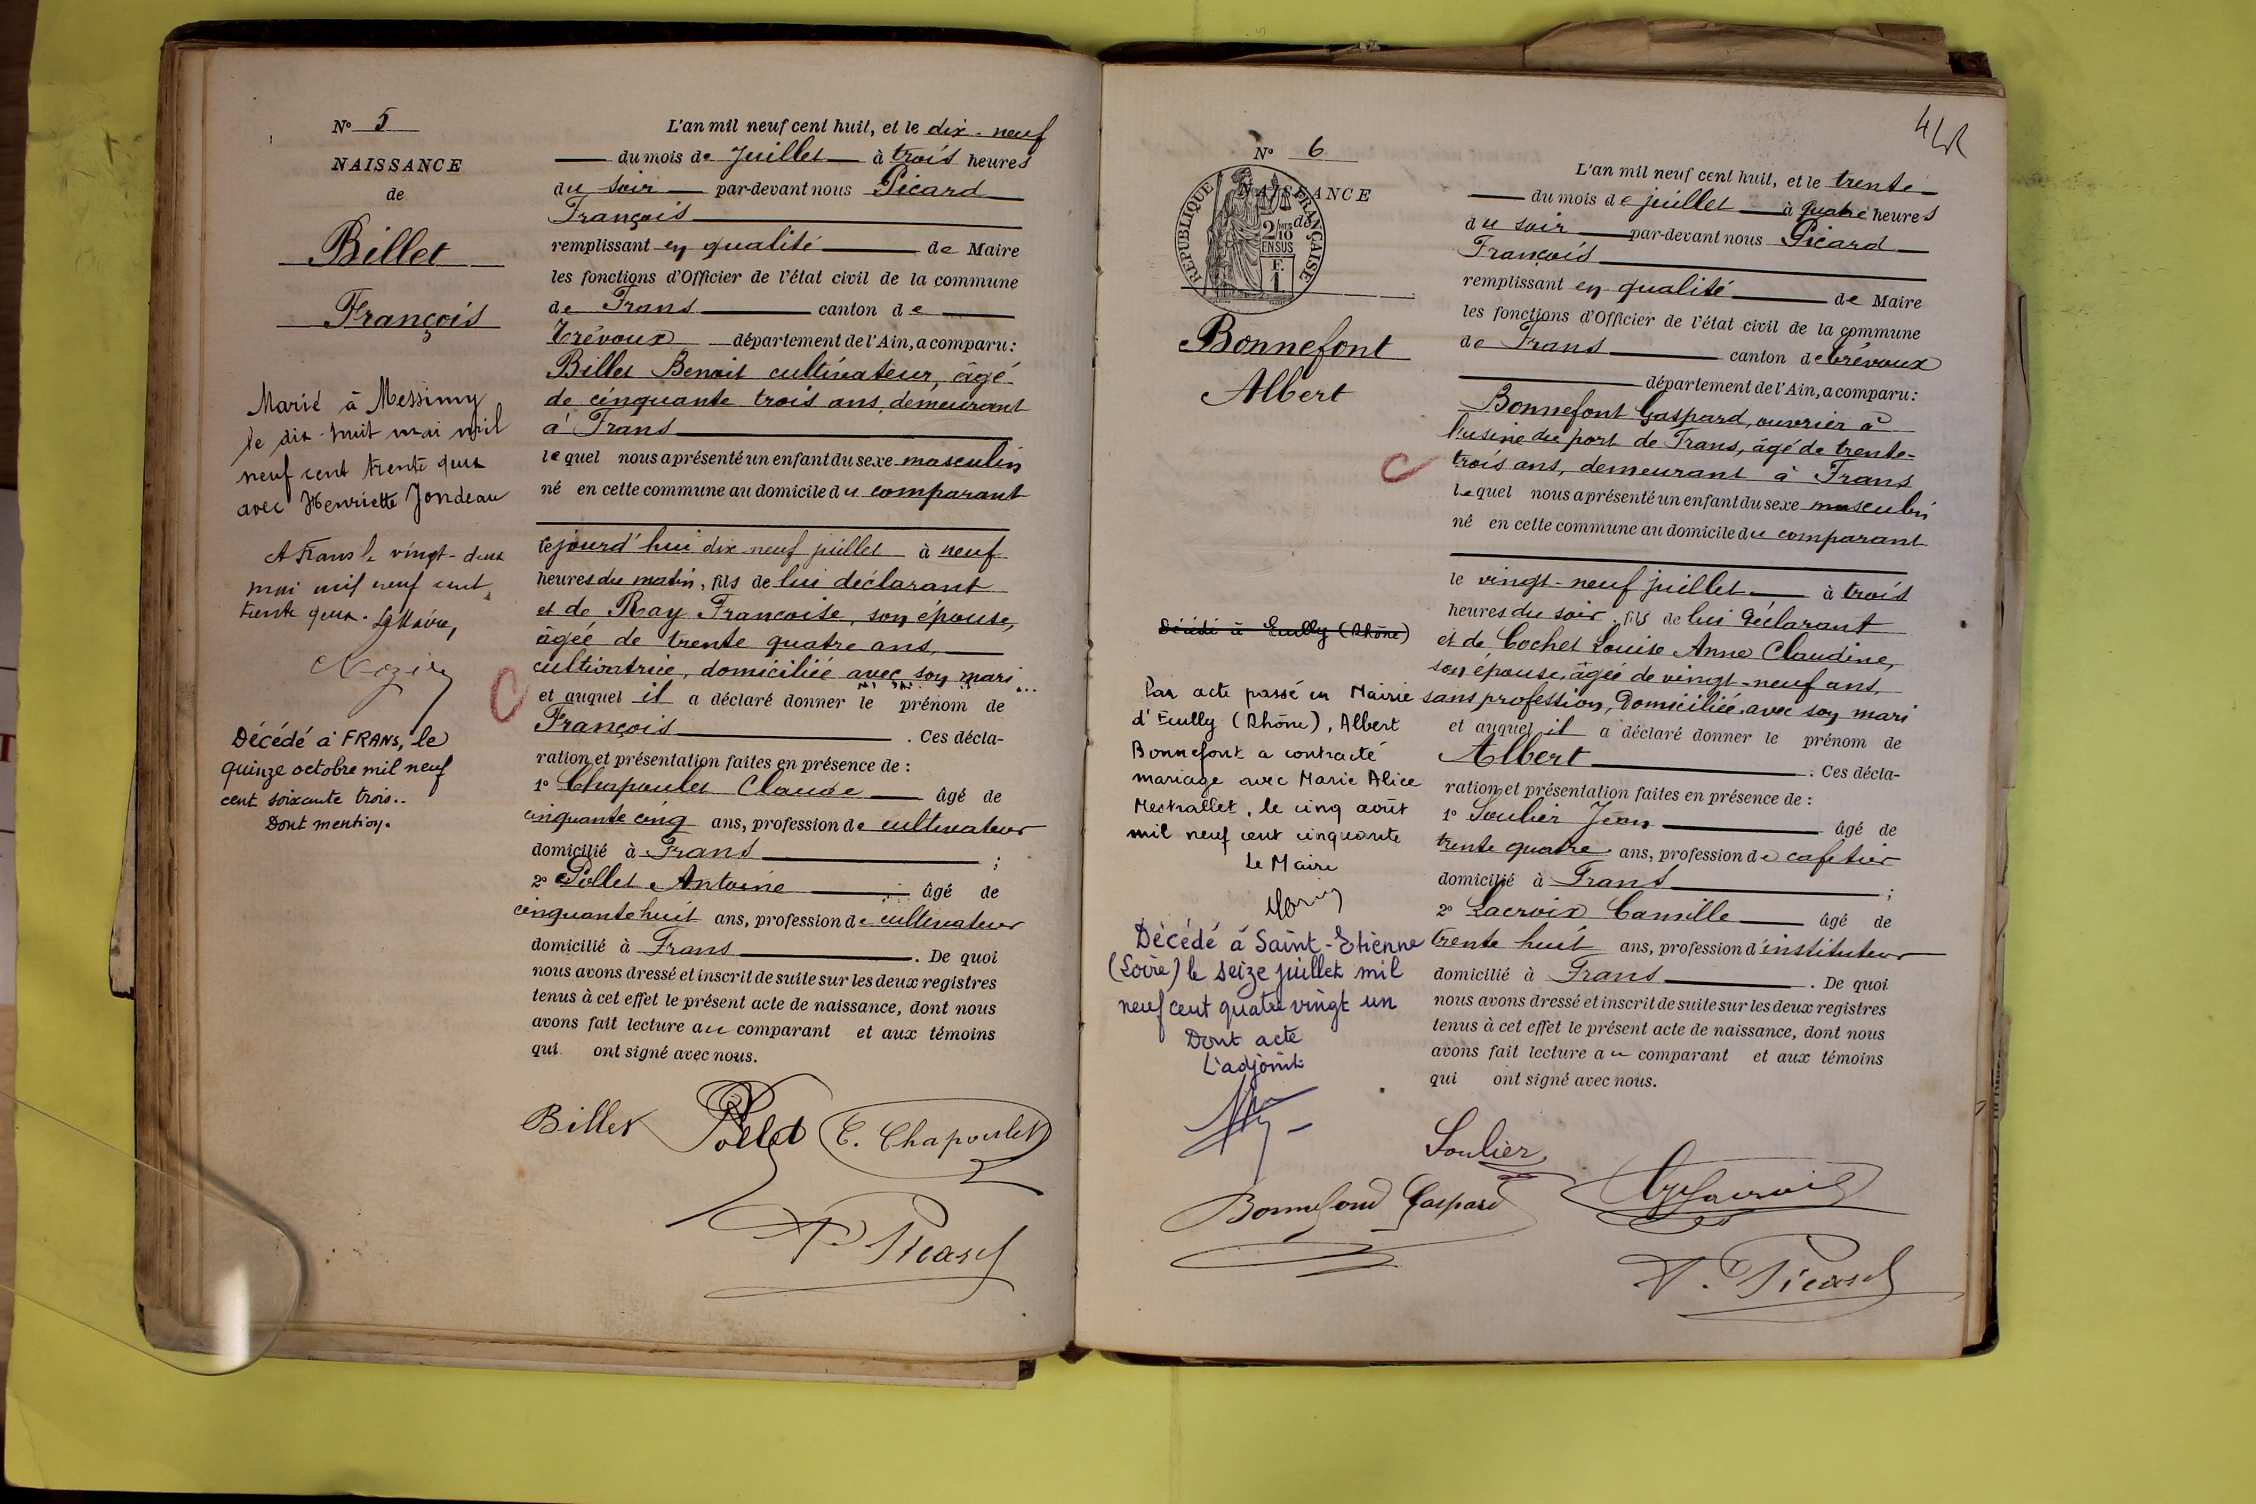 N° 5
NAISSANCE
de
Billet
François
Marié à Messimy
le dix-huit mai mil
neuf cent trente deux
avec Henriette Jondeau
A Frans le vingt-deux
mai mil neuf cent
trente deux. Le Maire,
Décédé à FRANS, le
quinze octobre mil neuf
cent soixante trois..
Dont mention.
L'an mil neuf cent huit, et le dix-neuf
du mois de Juillet à trois heures
du soir par-devant nous Picard
François
remplissant en qualité de Maire
les fonctions d'Officier de l'état civil de la commune
de Frans canton de
Trévoux département de l'Ain, a comparu :
Billet Benoit cultivateur, âgé
de cinquante trois ans, demeurant
à Frans
lequel nous a présenté un enfant du sexe masculin
né en cette commune au domicile du comparant
cejourd'hui dix-neuf juillet à neuf
heures du matin, fils de lui déclarant
et de Ray Françoise, son épouse,
âgée de trente quatre ans,
cultivatrice, domiciliée avec son mari
et auquel il a déclaré donner le prénom de
François . Ces décla-
ration et présentation faites en présence de :
1° Chapoulet Claude âgé de
cinquante cinq ans, profession de cultivateur
domicilié à Frans ;
2° Pollet Antoine âgé de
cinquante huit ans, profession de cultivateur
domicilié à Frans . De quoi
nous avons dressé et inscrit de suite sur les deux registres
tenus à cet effet le présent acte de naissance, dont nous
avons fait lecture au comparant et aux témoins
qui ont signé avec nous.
Billet Pollet C. Chapoulet
F. Picard
N° 6
NAISSANCE
de
RÉPUBLIQUE FRANÇAISE
2/10
EN SUS
F.
1.
Bonnefont
Albert
Décédé à Ecully (Rhône)
Par acte passé en Mairie
d'Ecully (Rhône), Albert
Bonnefont a contracté
mariage avec Marie Alice
Mestrallet, le cinq août
mil neuf cent cinquante
Le Maire
Décédé à Saint-Etienne
(Loire) le seize juillet mil
neuf cent quatre vingt un
Dont acte
L'adjoint
L'an mil neuf cent huit, et le trente
du mois de juillet à quatre heures
du soir par-devant nous Picard
François
remplissant en qualité de Maire
les fonctions d'Officier de l'état civil de la commune
de Frans canton de Trévoux
département de l'Ain, a comparu :
Bonnefont Gaspard, ouvrier à
l'usine du port de Frans, âgé de trente-
trois ans, demeurant à Frans
lequel nous a présenté un enfant du sexe masculin
né en cette commune au domicile du comparant
le vingt-neuf juillet à trois
heures du soir, fils de lui déclarant
et de Cochet Louise Anne Claudine,
son épouse, âgée de vingt-neuf ans,
sans profession, domiciliée avec son mari
et auquel il a déclaré donner le prénom de
Albert . Ces décla-
ration et présentation faites en présence de :
1° Soulier Jean âgé de
trente quatre ans, profession de cafetier
domicilié à Frans ;
2° Lacroix Camille âgé de
trente huit ans, profession d'instituteur
domicilié à Frans . De quoi
nous avons dressé et inscrit de suite sur les deux registres
tenus à cet effet le présent acte de naissance, dont nous
avons fait lecture au comparant et aux témoins
qui ont signé avec nous.
Soulier
Bonnefond Gaspard
F. Picard